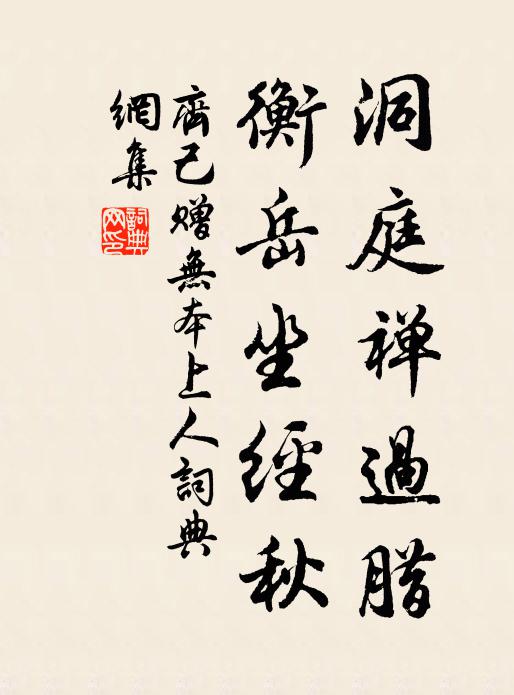 洞庭禅過腊
衡岳坐經秋
齊己贈無本上人詞典
網集
詞典網印